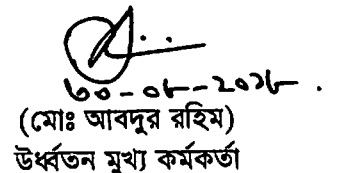 ৩০-০৮-২০১৮.
(মোঃ আবদুর রহিম)
উর্ধ্বতন মুখ্য কর্মকর্তা